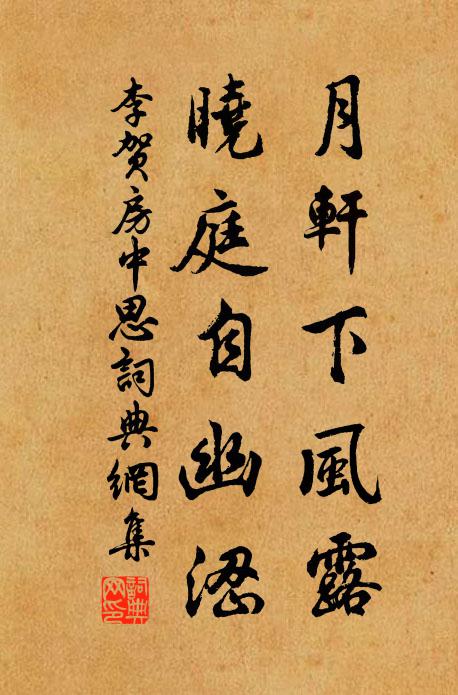 月軒下風露
曉庭自幽澀
李賀房中思詞典網集
詞典
网印